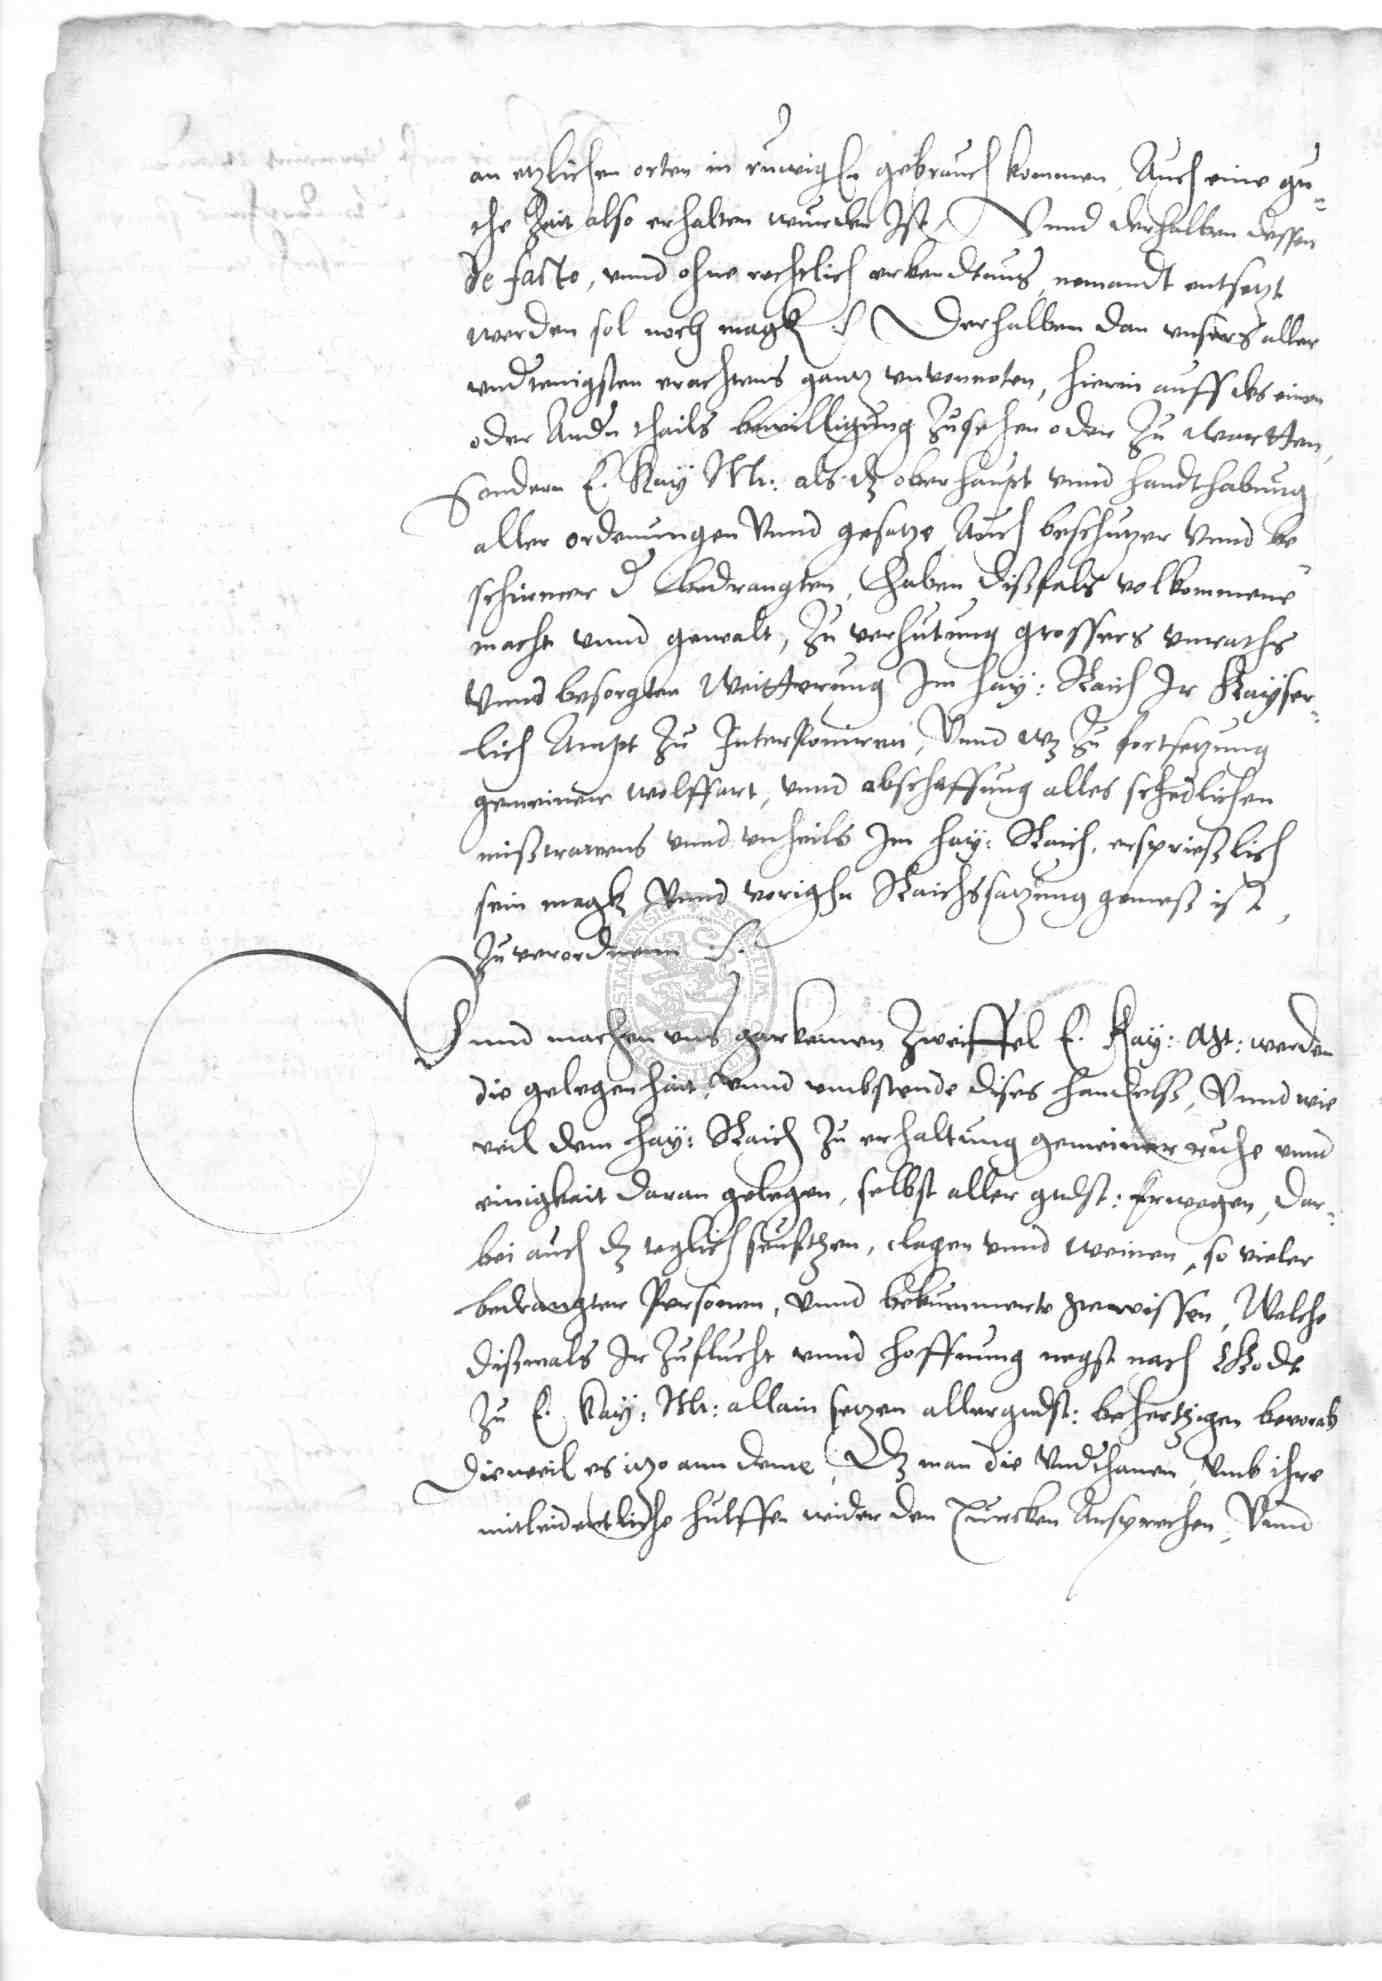 an etzlichen orten in ruwigen gebrauch kommen, Auch eine gu-
the Zeit also erhalten wurden Ist, Vnnd derhalben dessen
de facto, vnnd ohne rechtlich erkendtnus, nemandt entsetzt
werden sol noch magk Derhalben dan vnsers aller
vndtenigsten erachtens gantz vnvonnoten, hierin auff des einen
oder Andn theils bewilligung Zusehen oder Zu wartten,
Sondern E. Kay Mt: als dz oberhaupt vnnd handthabung
aller ordenungen Vnnd gesetze Auch beschutzer Vnnd be
schirmer d bedrangten, haben dißfals volkommene
macht vnnd gewalt, Zu verhutung grossers vnraths
Vnnd besorgten Weitterung Im hay: Reich Ir Kayser-
lich Ampt Zu Interponiren, Vnnd wz Zu fortsetzung
gemeiner wolffart, vnnd abschaffung alles schedlichen
mißtrawens vnnd vnheils Im hay: Reich, ersprießlich
sein magk Vnnd vorighn Reichssatzung gemeß ist,
Zu verordnenn
Vnnd machen vns gar keinen Zweiffel E. Kay: Mt: werden
die gelegenheit, vnnd vmbstende dises handelß, Vnnd wie
veil dem hay: Reich Zu erhaltung gemeiner ruhe vnnd
einigkeit daran gelegen, selbst aller gndst: Erwegen, Dar-
bei auch dz teglich seufftzen, clagen vnnd weinen, so vieler
bedrangter Personen, Vnnd bekummerte gewissen, Welche
dißmals Ir Zuflucht vnnd hoffnung negst nach Gode
Zu E. Kay: Mt: allain setzen allergndst: behertzigen bevorab
Dieweil es itzo ann deme, Dz man die Vndthanen, Vmb ihre
mitleidentliche hulffen wider den Turcken Ansprechen, Vnnd